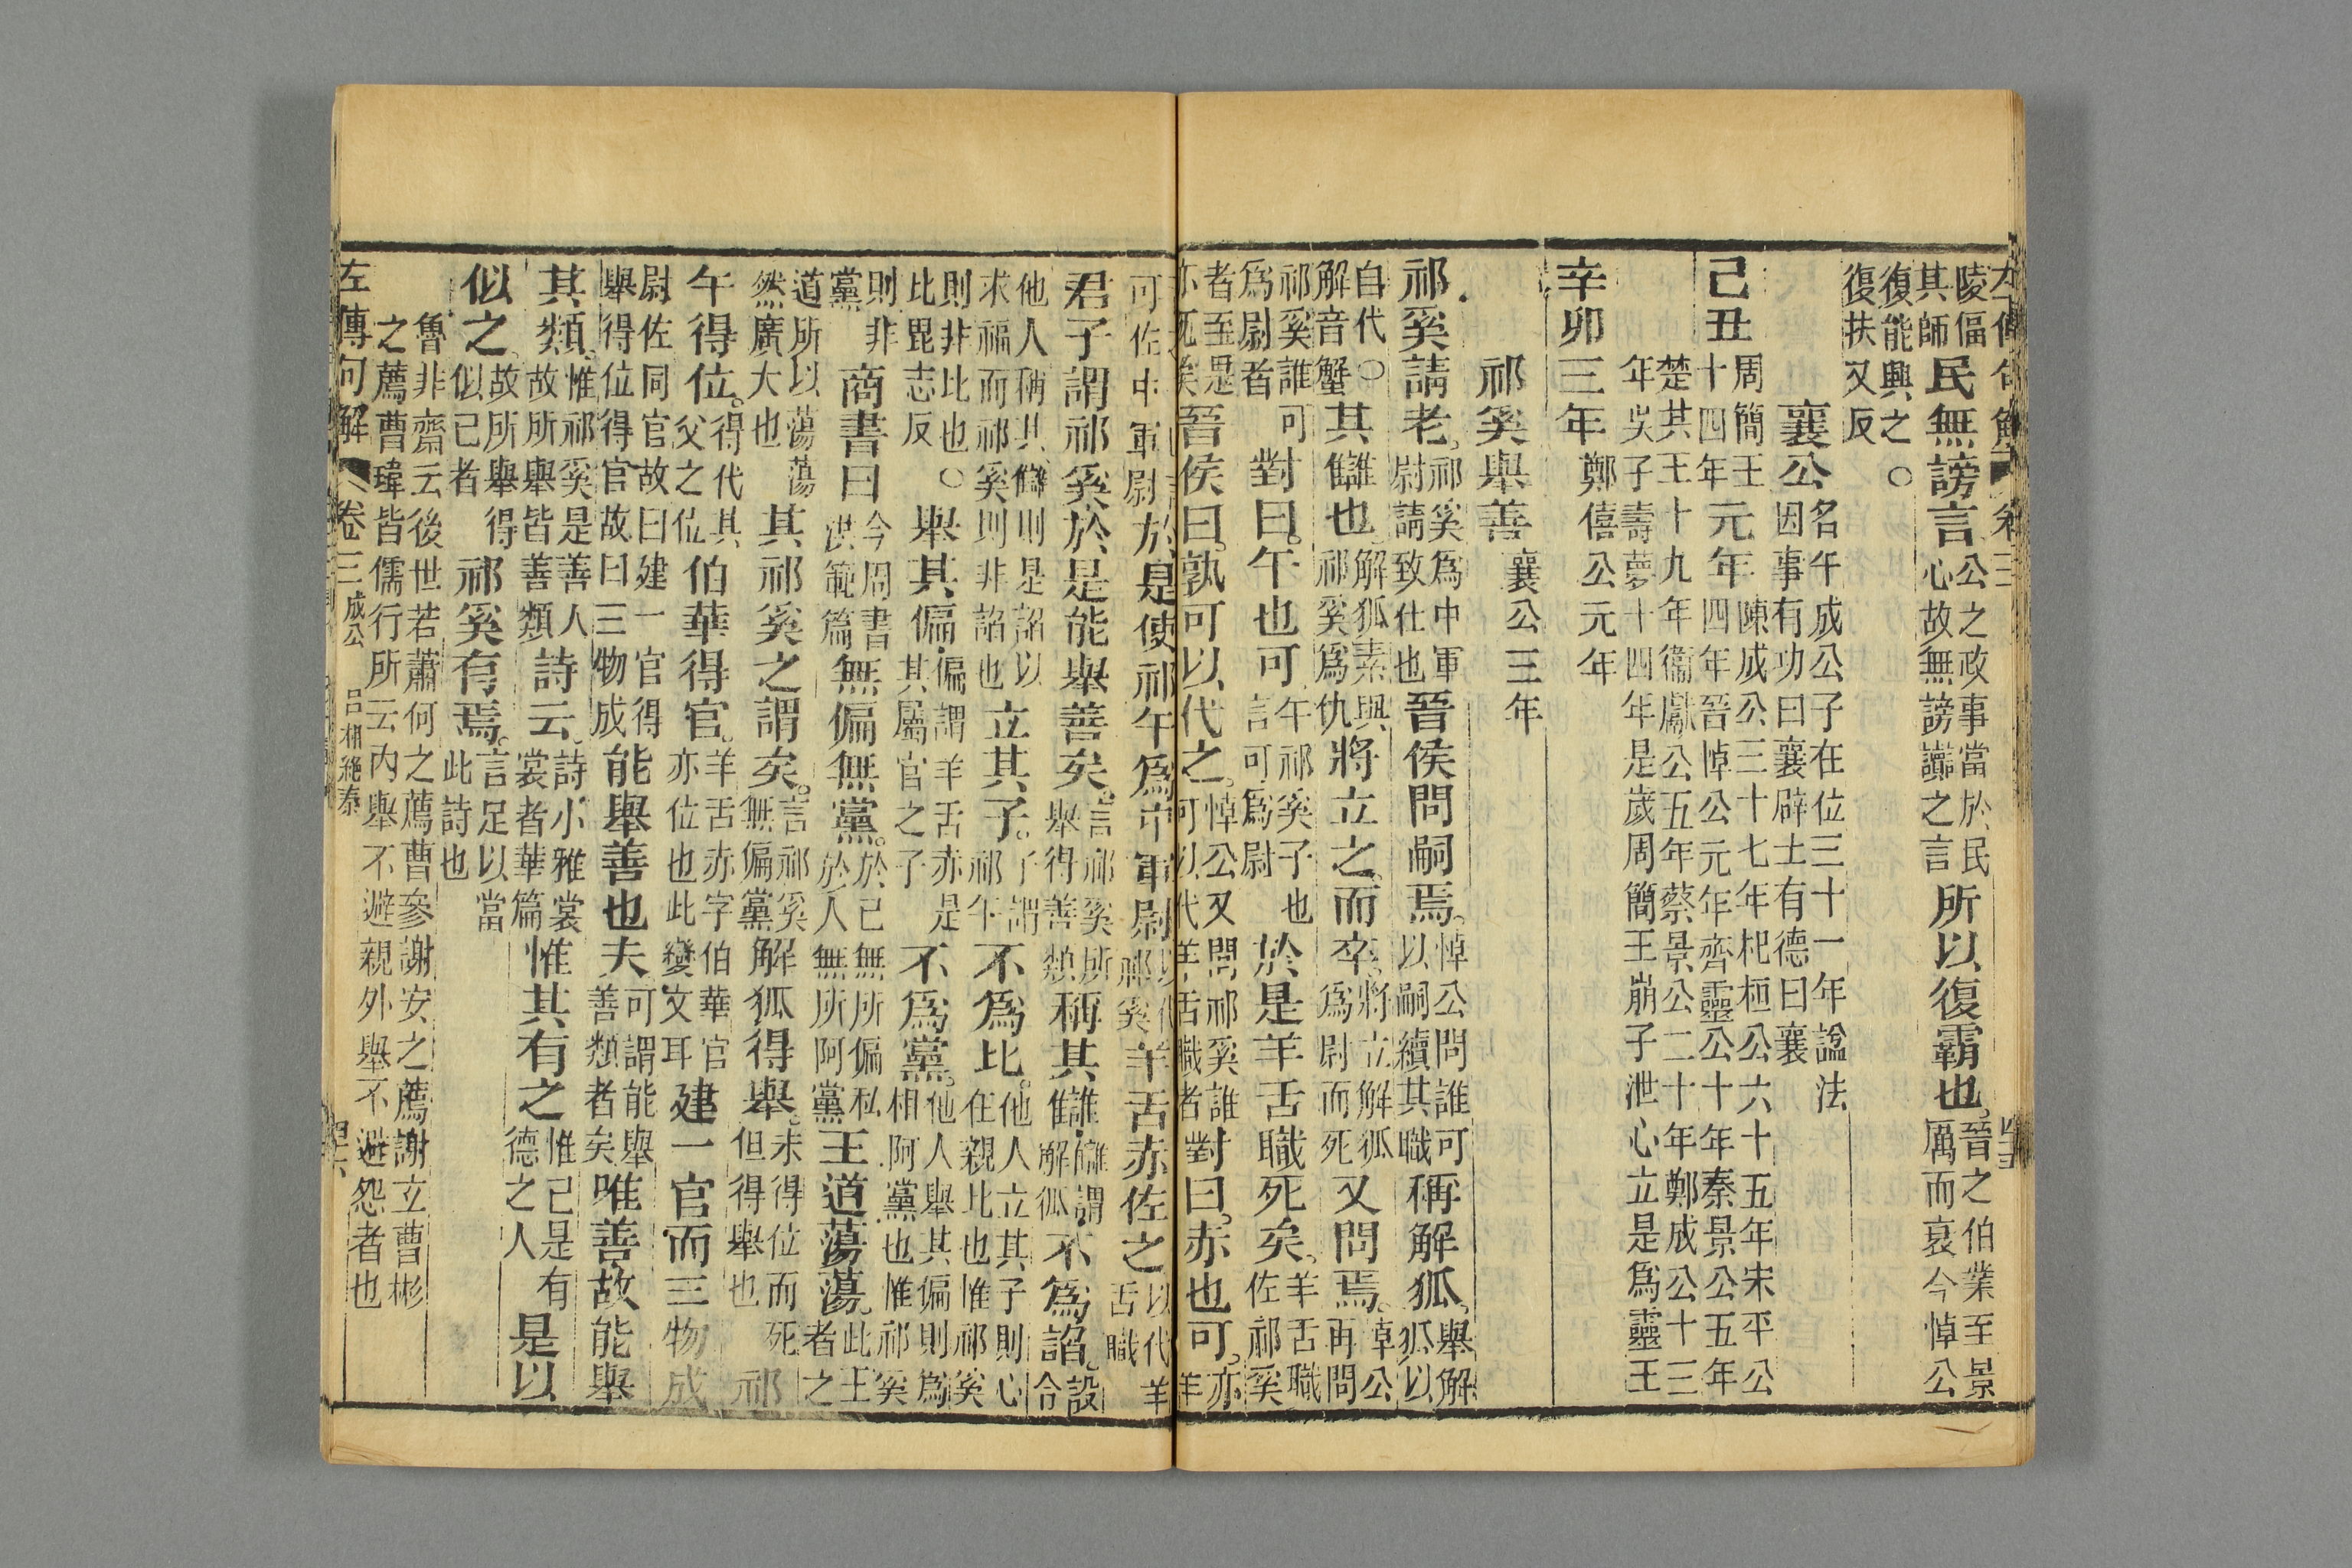 陵偪其師民無謗言公之政事當於民心故無謗讟之言所以復霸也晉之伯業至景厲而衰今悼公
復能興之○復扶又反
襄公名午成公子在位三十一年諡法因事有功曰襄辟土有德曰襄
己丑周簡王十四年元年陳成公三十七年杞桓公六十五年宋平公四年晉悼公元年齊靈公十年秦景公五年
楚共王十九年衞獻公五年蔡景公二十年鄭成公十三年吳子壽夢十四年是歲周簡王崩子泄心立是爲靈王
辛卯三年鄭僖公元年
祁奚舉善襄公三年
祁奚請老祁奚爲中軍尉請致仕也晉侯問嗣焉悼公問誰可以嗣續其職稱解狐舉解狐以
自代○解音蟹其讎也解狐素與祁奚爲仇將立之而卒將立解狐爲尉而死又問焉悼公再問
祁奚誰可爲尉者對曰午也可午祁奚子也言可爲尉於是羊舌職死矣羊舌職佐祁奚
者至是亦死矣晉侯曰孰可以代之悼公又問祁奚誰可以代羊舌職者對曰赤也可亦羊
可佐中軍尉於是使祁午爲中軍尉以代祁奚羊舌赤佐之以代羊舌職
君子謂祁奚於是能舉善矣言祁奚所舉得善類稱其讎讎謂解狐不爲諂設令
他人稱其讎則是諂以求福而祁奚則非諂也立其子子謂祁午不爲比他人立其子則心住親比也惟祁奚
則非比也○比毘志反舉其偏偏謂羊舌赤是其屬官之子不爲黨他人舉其偏則爲相阿黨也惟祁奚
則非黨商書曰今周書洪範篇無偏無黨於己無所偏私於人無所阿黨王道蕩蕩此王者之
道所以蕩蕩然廣大也其祁奚之謂矣言祁奚無偏黨解狐得舉未得位而死但得舉也祁
午得位得代其父之位伯華得官羊舌赤字伯華官亦位也此變文耳建一官而三物成
尉佐同官故曰建一官得舉得位得官故曰三物成能舉善也夫可謂能舉善類者矣唯善故能舉
其類惟祁奚是善人故所舉皆善類詩云詩小雅裳裳者華篇惟其有之惟己是有德之人是以
似之故所舉得似己者祁奚有焉言足以當此詩也
魯非齋云後世若蕭何之薦曹參謝安之薦謝立曹彬之薦曹瑋皆儒行所云內舉不避親外舉不避怨者也
左傳句解 卷三成公 呂相絶秦